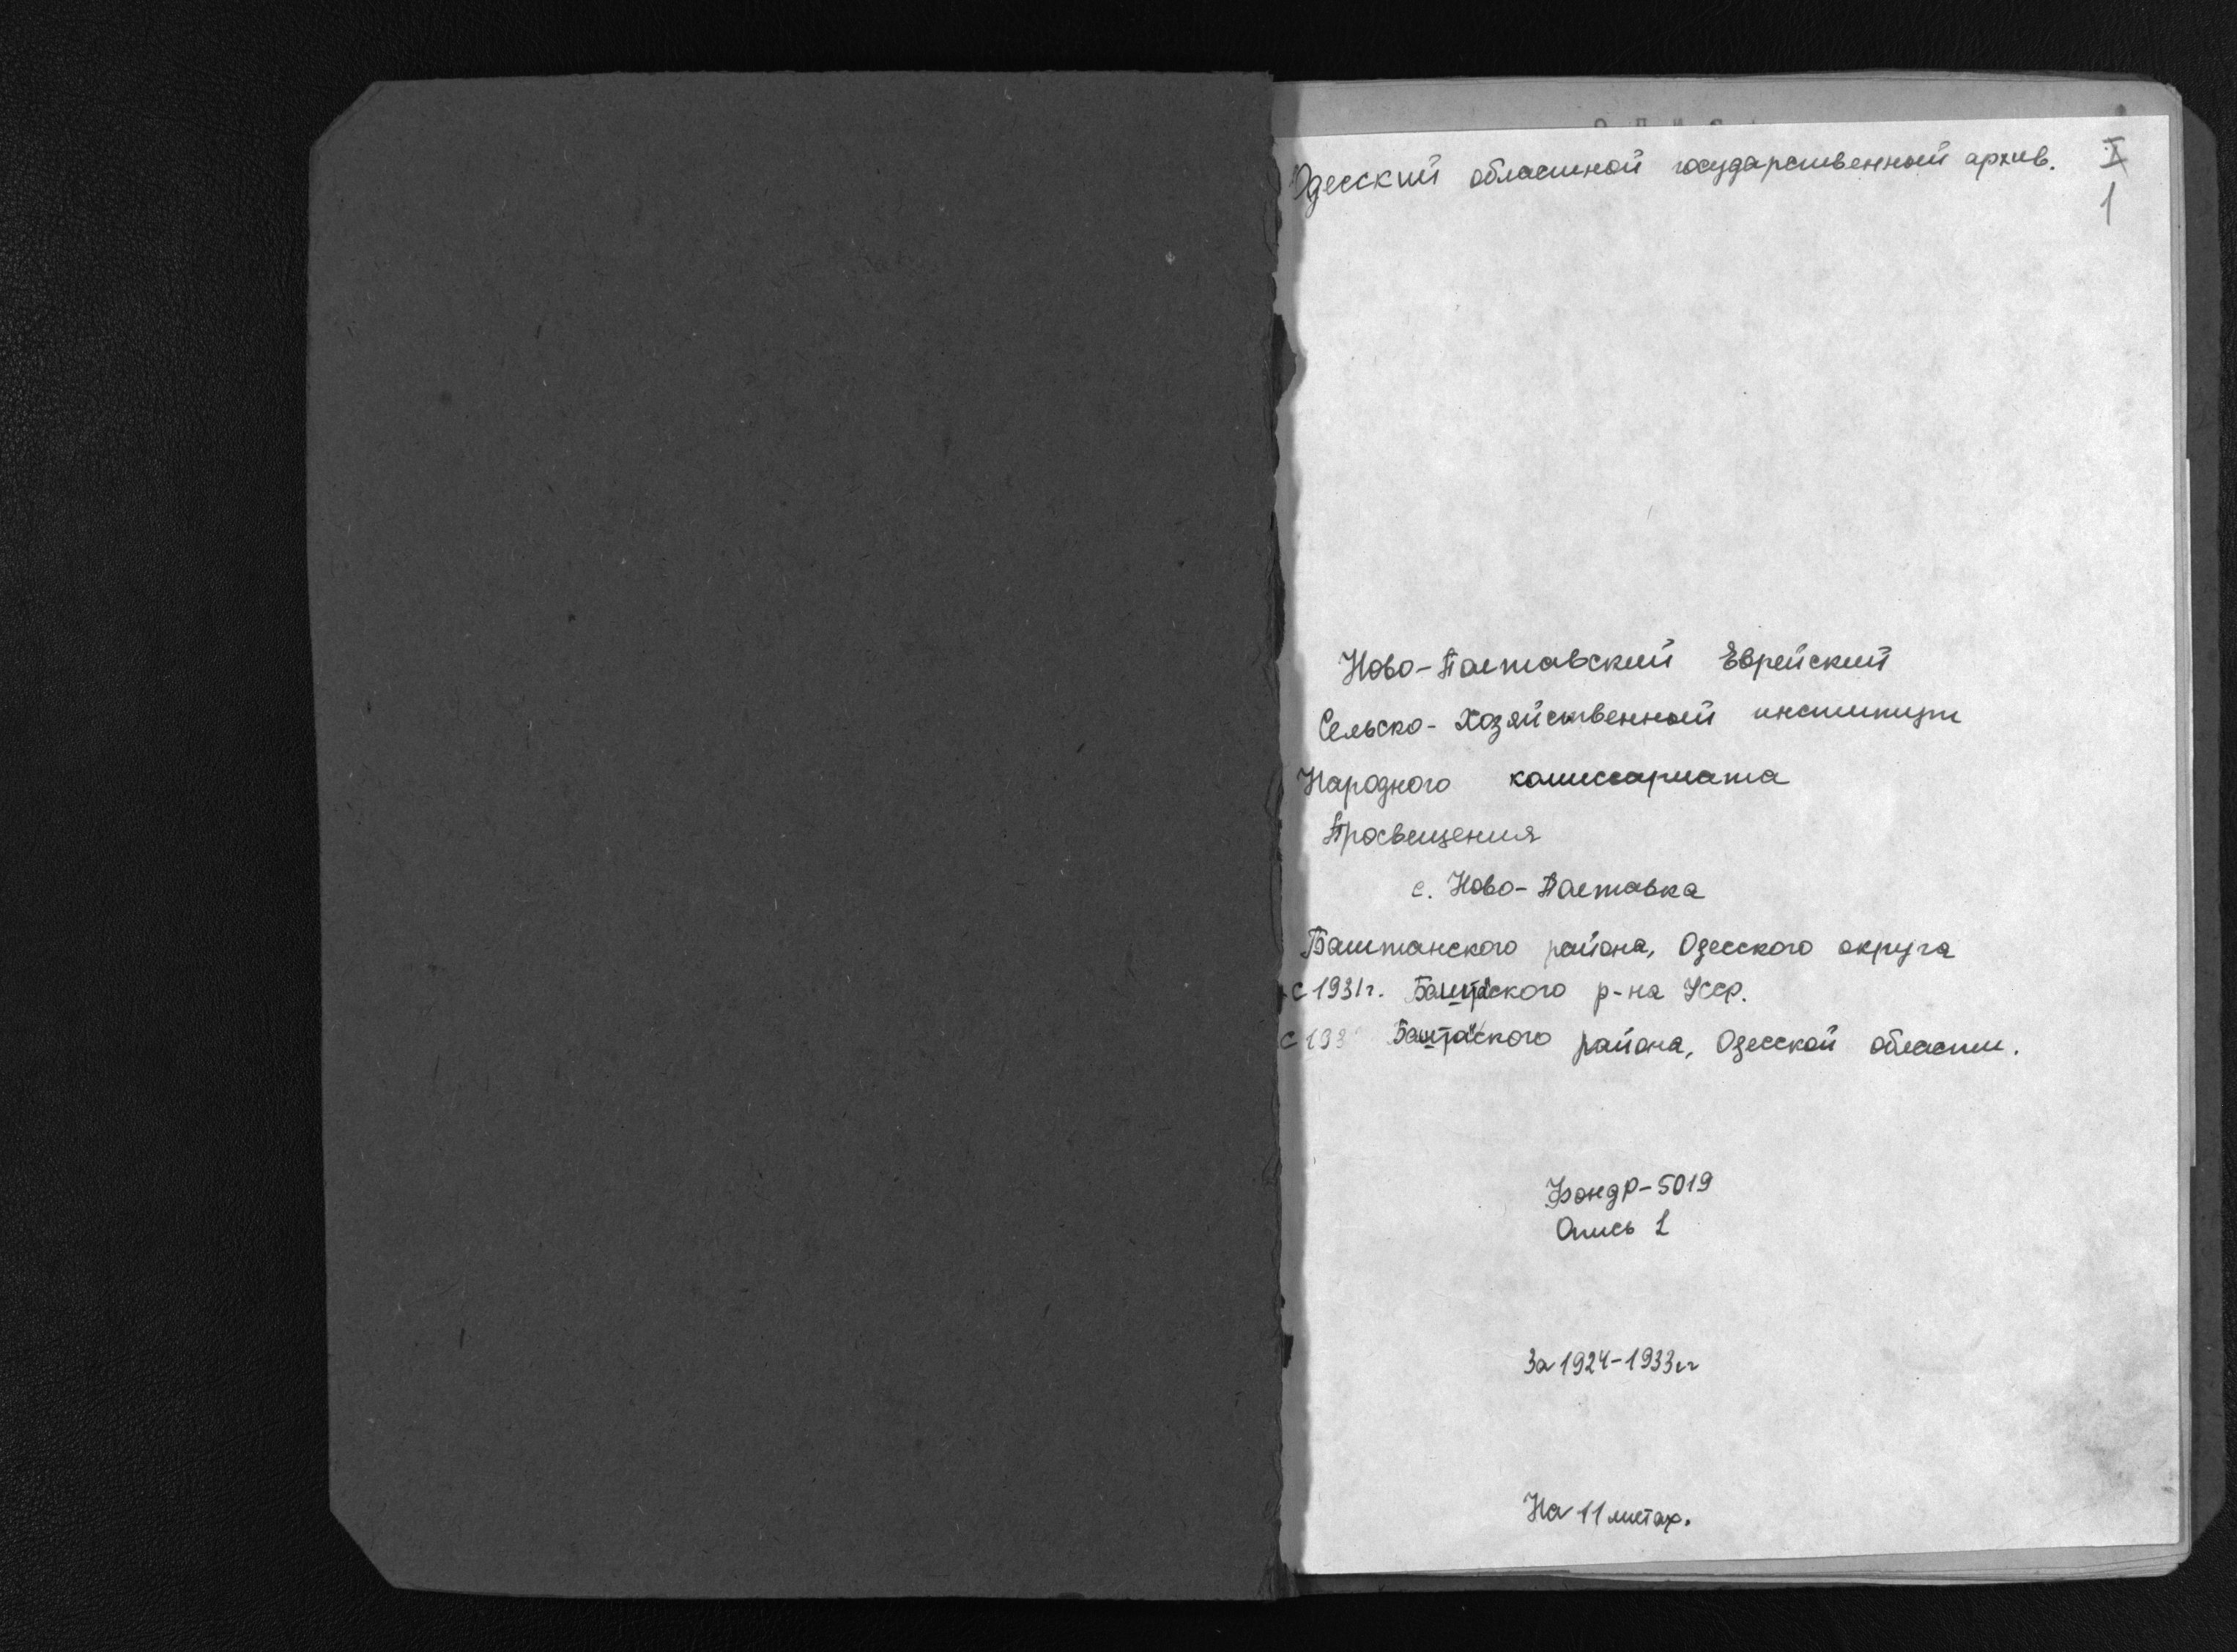 Одесский областной государственный архив.
I
1
Ново-Полтавский Еврейский
Сельско-Хозяйственный институт
Народного комиссариата
Просвещения
с. Ново-Полтавка
Баштанского района, Одесского округа
с 1931г. Баштанского р-на УССР.
с 193 Баштанского района, Одесской области.
Фонд Р-5019
Опись 1
За 1924-1933гг
На 11 листах.